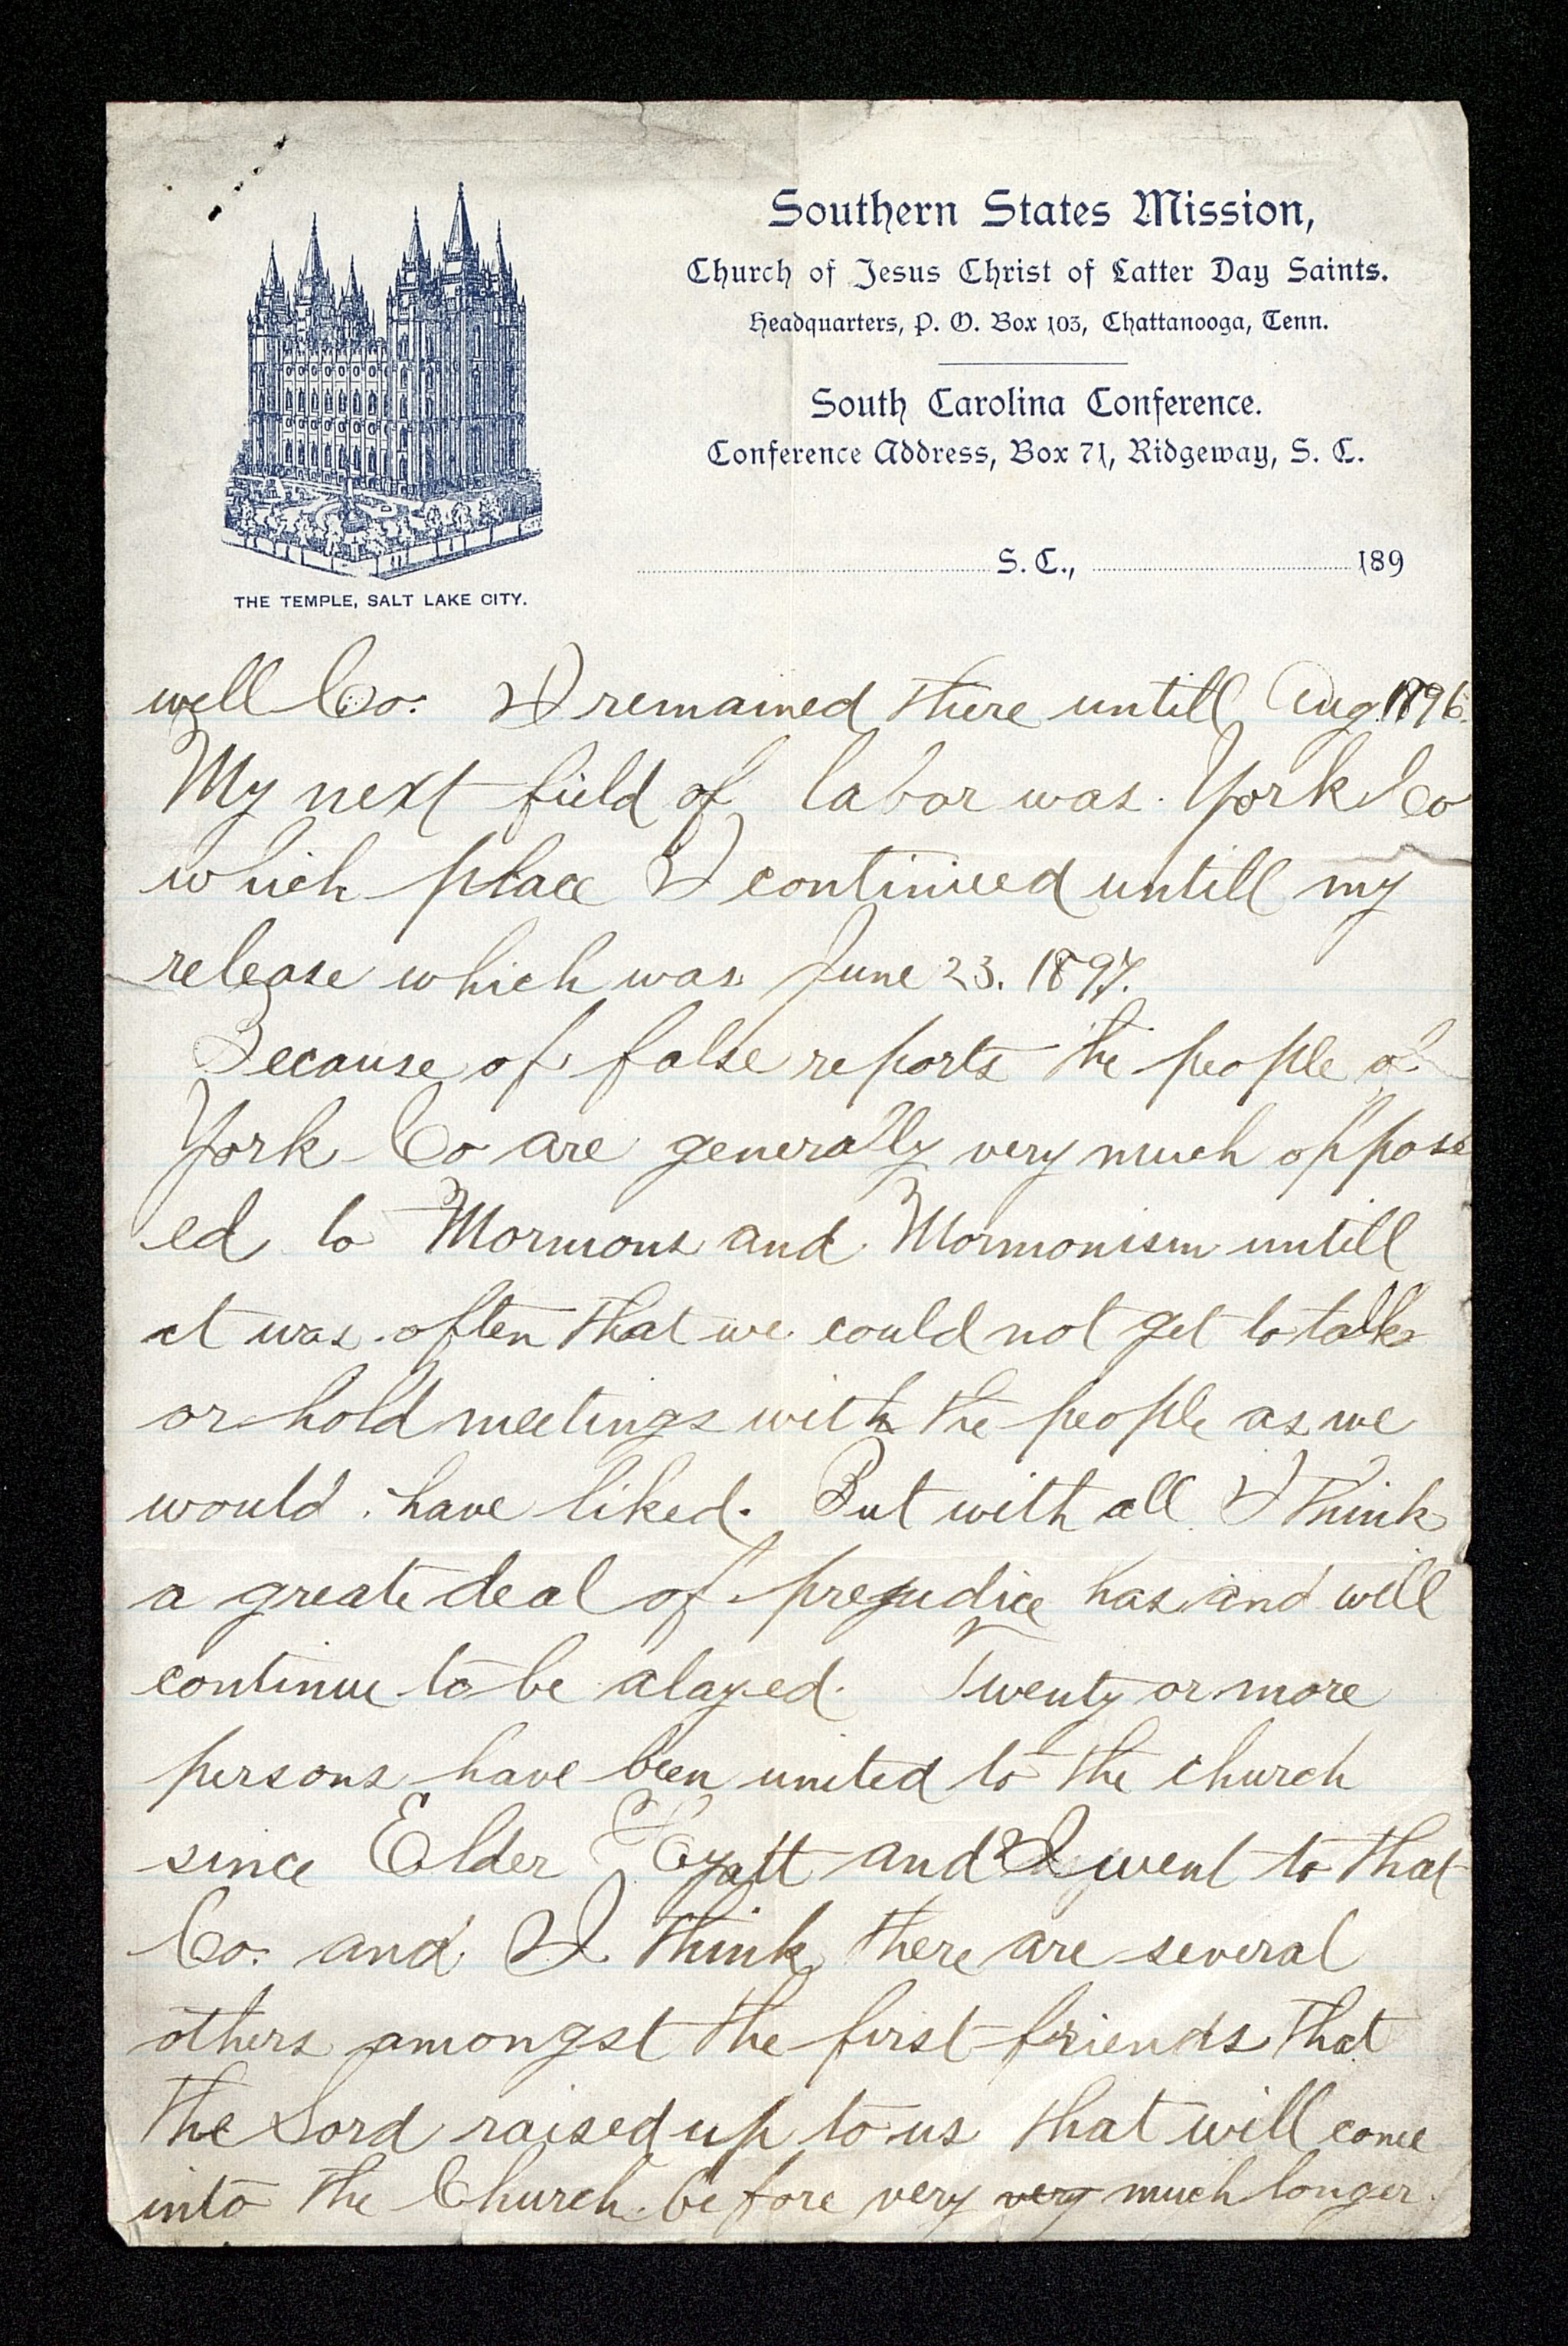 Southern States Mission,
Church of Jesus Christ of Latter Day Saints.
Headquarters, P. O. Box 103, Chattanooga, Tenn.
South Carolina Conference.
Conference Address, Box 71, Ridgeway, S. C.
S. C., 189
THE TEMPLE, SALT LAKE CITY.
well Co. I remained there untill Aug. 1896.
My next field of labor was York Co
which place I continued untill my
release which was June 23. 1897.
Because of false reports the people of
York Co are generally very much oppose
ed to Mormons and Mormonism untill
it was often that we could not get to talk
or hold meetings with the people as we
would have liked. But with all I think
a greate deal of prejudice has and will
continue to be alayed. Twenty or more
persons have been united to the church
since Elder Hyatt and I went to that
Co. and I think there are several
others amongst the first friends that
the Lord raised up to us that will come
into the Church before very very much longer.